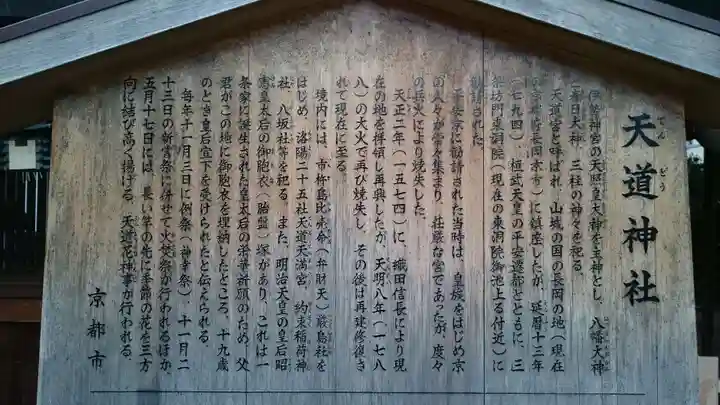 天道神社
てんどう
伊勢神宮の天照皇大神を主神とし、八幡大神
春日大神、三柱の神々を祀る。
天道宮と呼ばれ、山城の国の長岡の地(現在
の京都府長岡京市)に鎮座したが、延暦十三年
(七九四)、桓武天皇の平安遷都とともに、三
条坊門東洞院(現在の東洞院御池上る付近)に
勧請された。
平安京に勧請された当時は、皇族をはじめ京
の人々が常々集まり、荘厳な宮であったが、度々
の兵火により焼失した。
天正二年(一五七四)に、織田信長により現
在の地を得領し再興したが、天明八年(一七八
八)の大火で再び焼失し、その後は再建修復さ
れて現在に至る。
境内には、市杵島比売命(弁財天)厳島社を
はじめ、洛陽二十五社天道天満宮、約束稲荷神
社、八坂社等を祀る。また、明治天皇の皇后昭
憲皇太后の御胞衣(胎盤)塚があり、これは一
条家に誕生された皇太后の栄華祈願のため、父
君がこの地に御胞衣を埋納したところ、十九歳
のとき皇后宣下を受けられたと伝えられる。
毎年十一月三日に例祭(神幸祭)、十一月二
十三日の新嘗祭に併せて火焚祭が行われるほか、
五月十七日には、長い竿の先に季節の花を三方
向に結び高く揚げる、天道花神事が行われる。
京都市